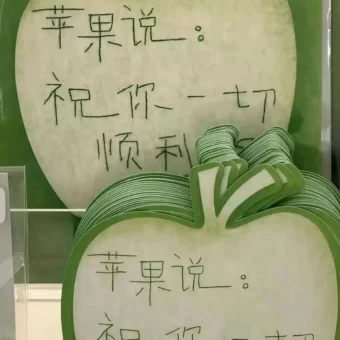 苹果说：
祝你一切
顺利
苹果说：
祝你一切